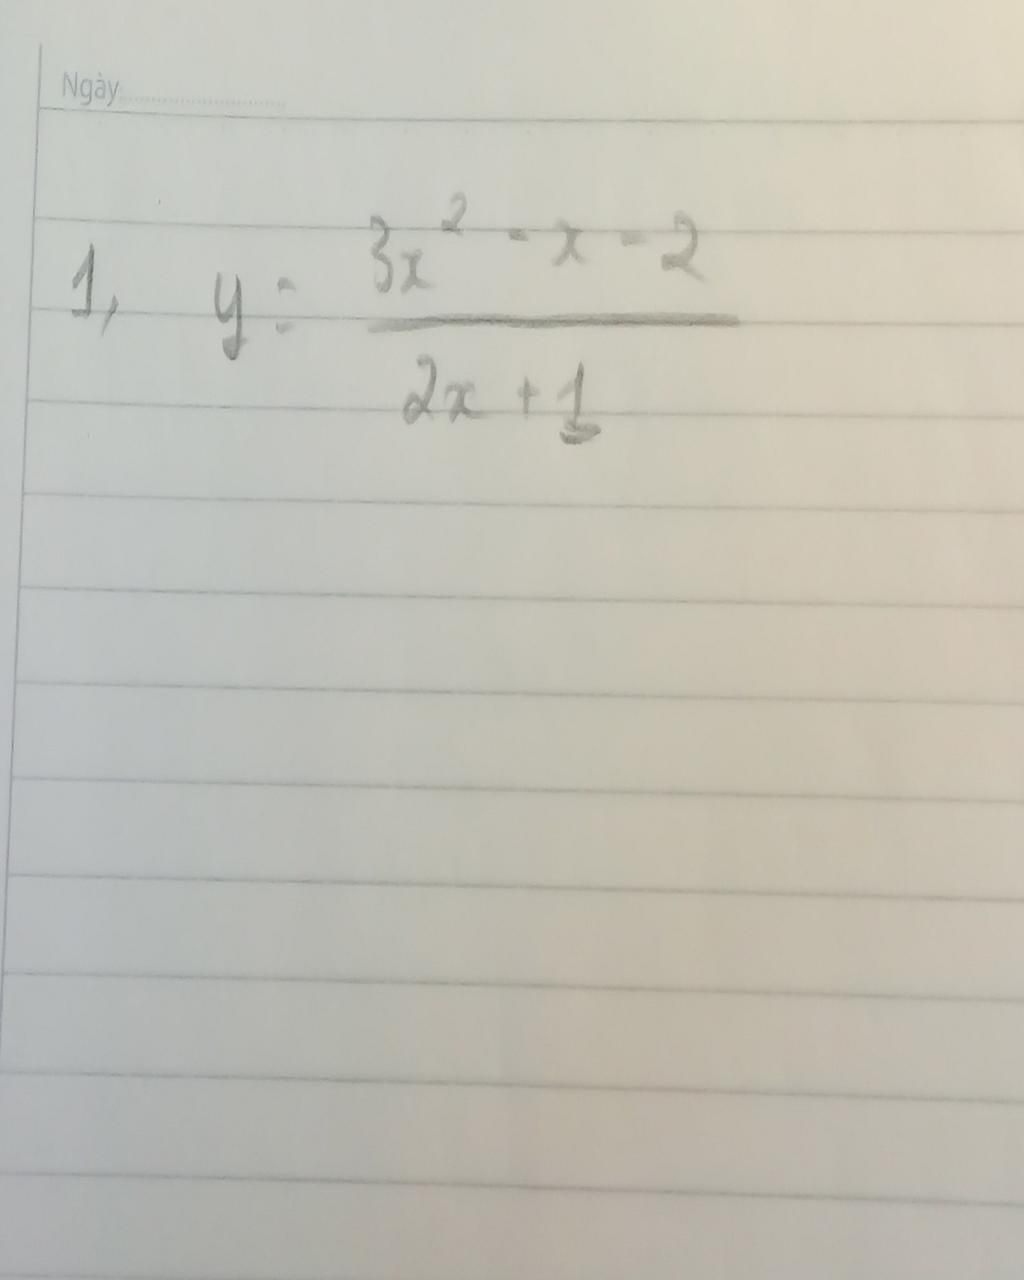 Ngày
1, y = \frac{3x^2 - x - 2}{2x + 1}